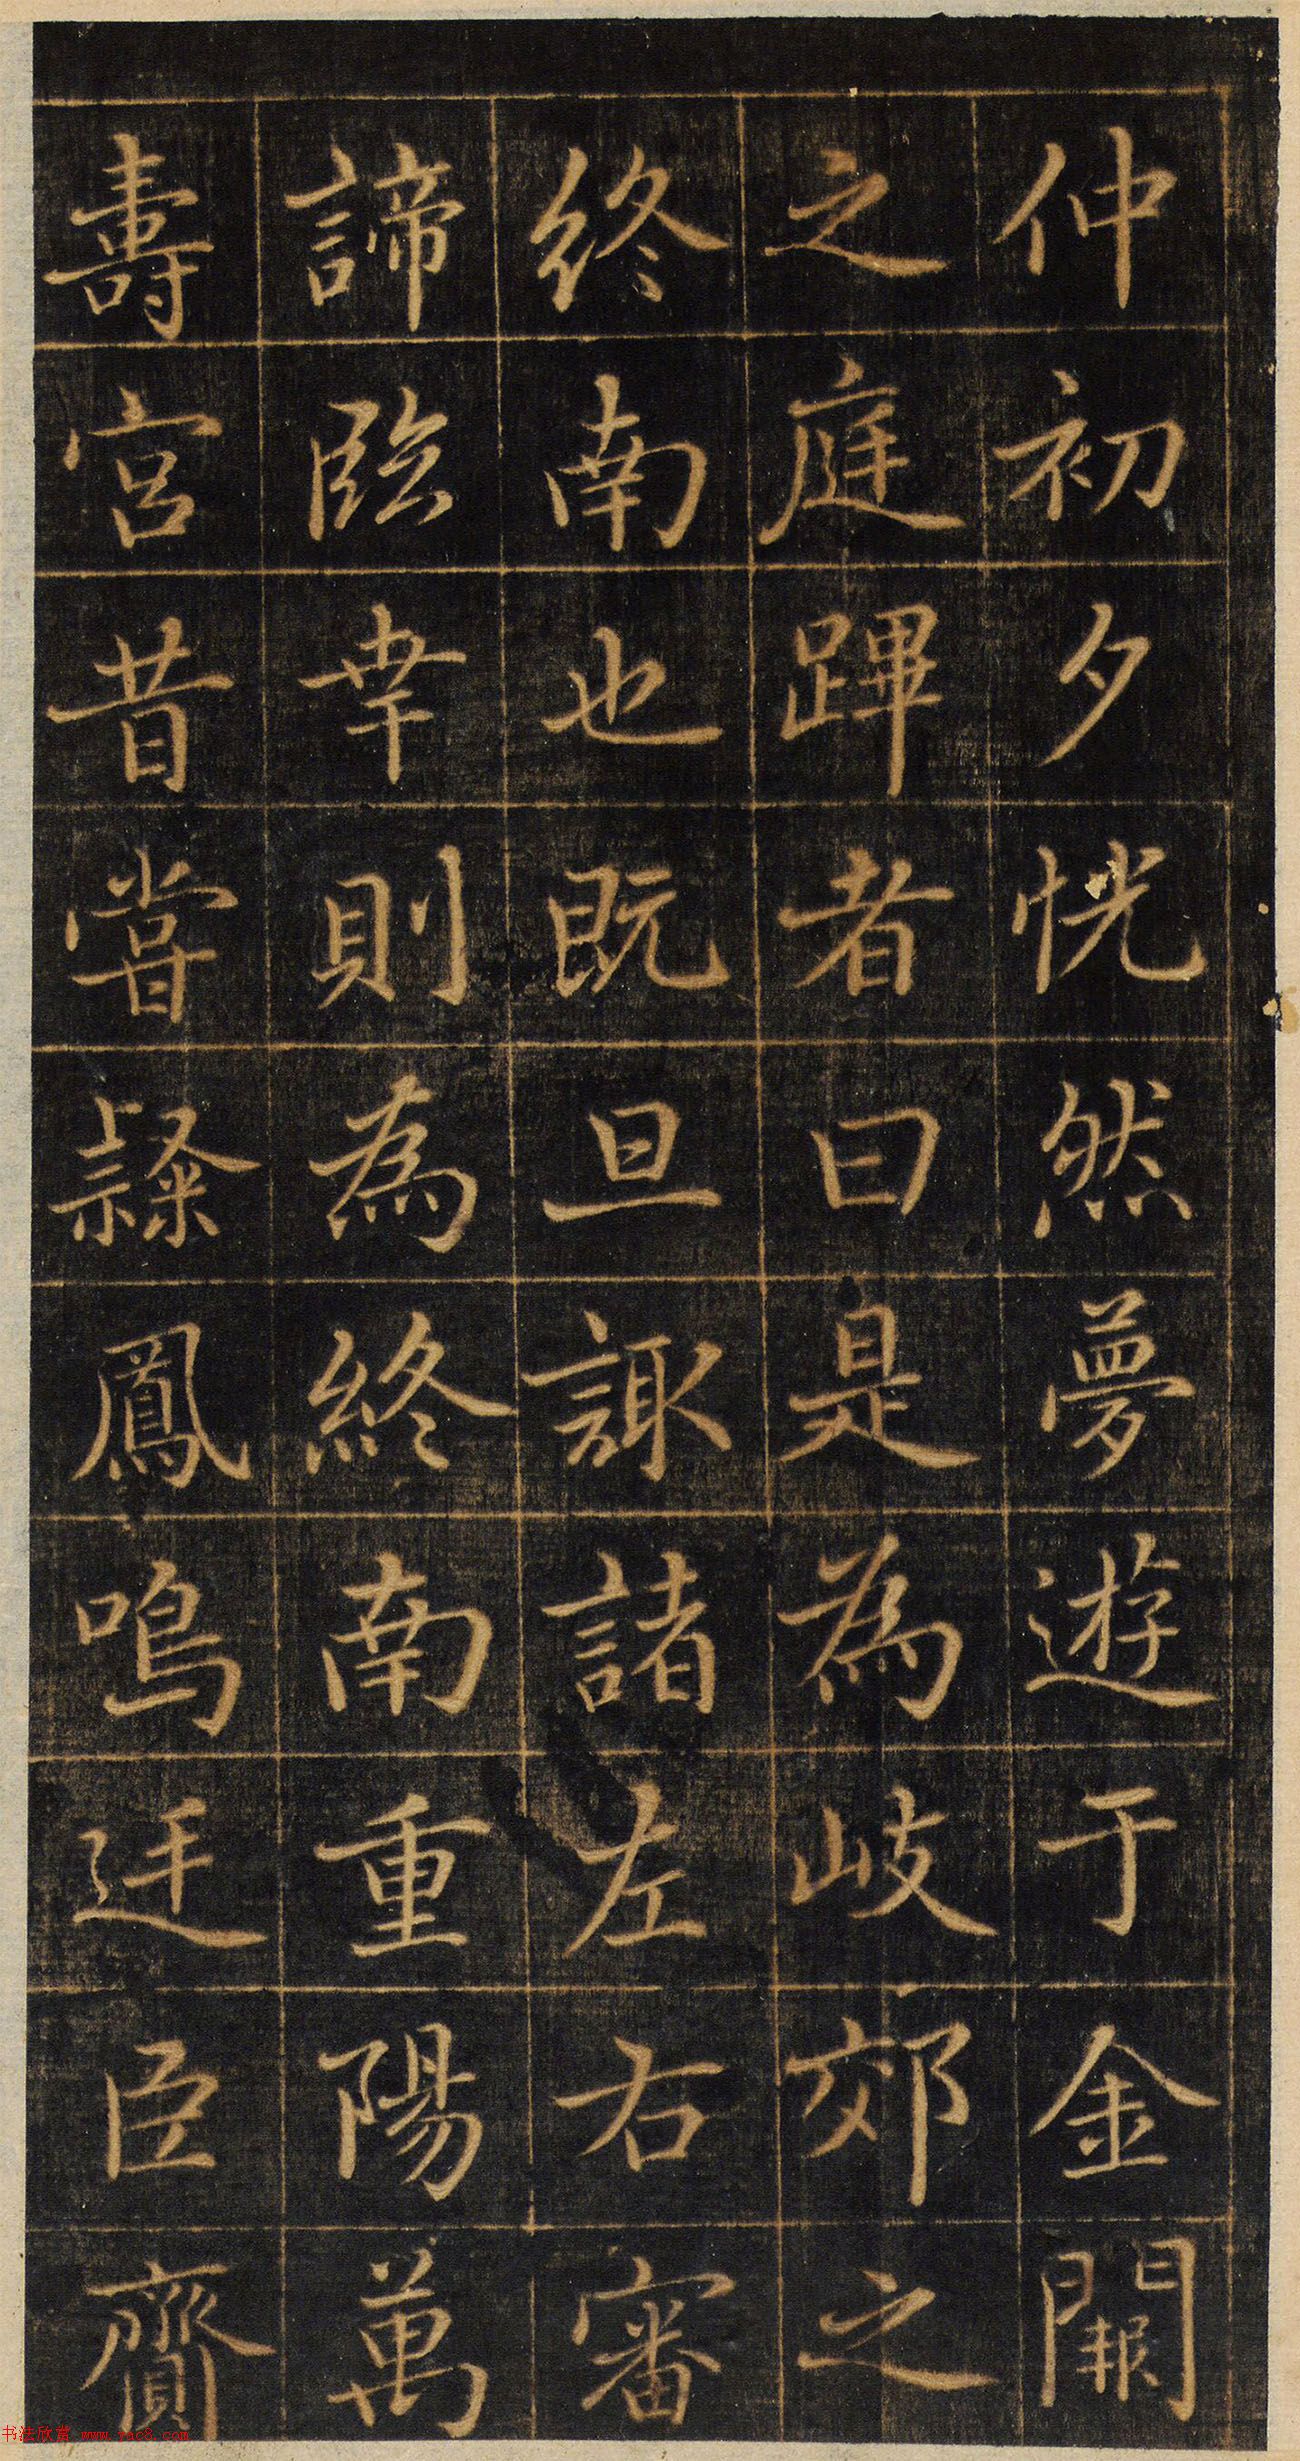 仲初夕恍然夢遊于金闕
之庭蹕者曰是為岐郊之
終南也既旦諏諸左右審
諦臨幸則為終南重陽萬
壽宮昔嘗隸鳳鳴廷臣齎
书法欣赏 www.yac8.com